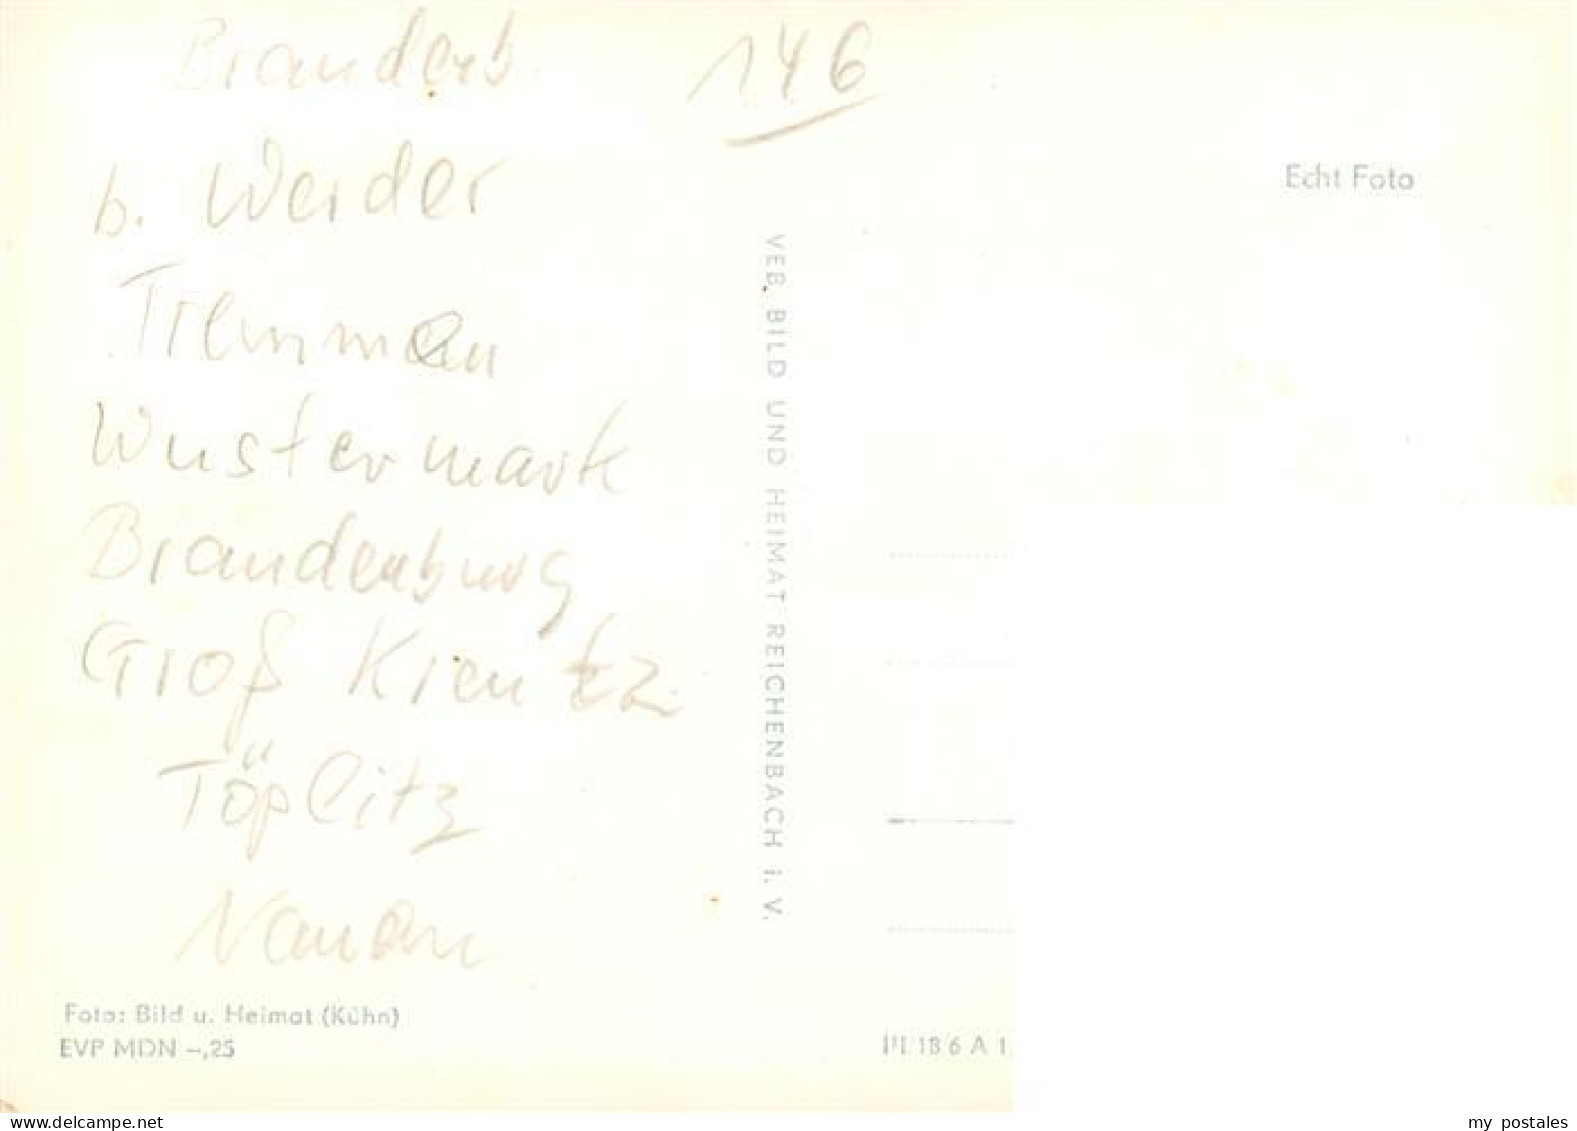 Brandenb
146
b. Werder
Tremmen
Wustermark
Brandenburg
Groß Kreutz
Töplitz
Nauen
Echt Foto
VEB. BILD UND HEIMAT REICHENBACH i. V.
Foto: Bild u. Heimat (Kühn)
EVP MDN –,25
III 18 6 A 1
www.delcampe.net
my postales